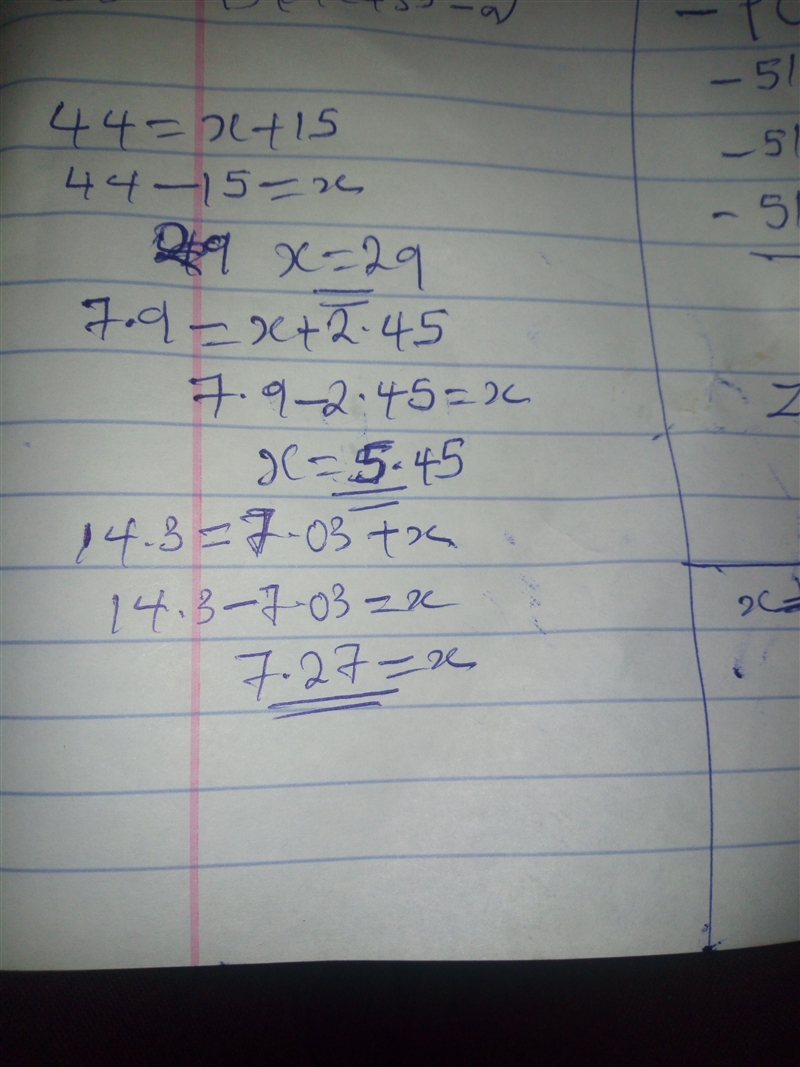 44=x+15
44-15=x
x=29
7.9=x+2.45
7.9-2.45=x
x=5.45
14.3=7.03+x
14.3-7.03=x
7.27=x
-51
-51
-51
x=